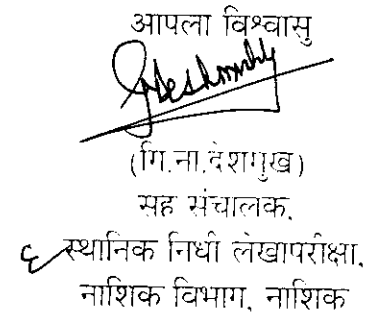 आपला विश्वासु
(गि.ना.देशमुख)
सह संचालक,
स्थानिक निधी लेखापरीक्षा,
नाशिक विभाग, नाशिक